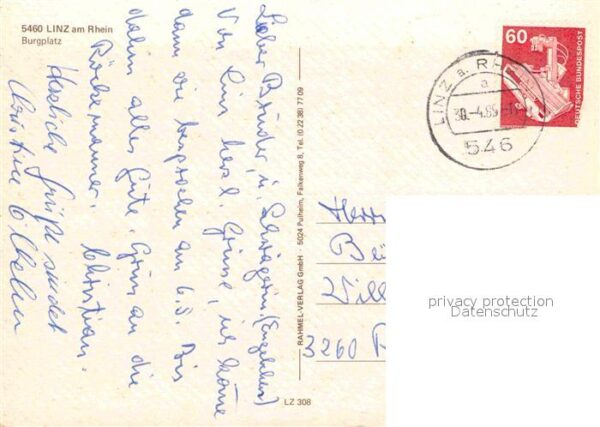 5460 LINZ am Rhein
Burgplatz
Lieber Bruder u. Schwägerin,
Von Linz herzl. Grüsse, ich komme
dann wie besprochen am 6.5. Bis
dahin alles Gute. Gruss an die
Christian.
Herzliche Grüße sendet
RAHMEL-VERLAG GmbH · 5024 Pulheim, Falkenweg 8, Tel. (0 22 38) 77 09
LZ 308
60
DEUTSCHE BUNDESPOST
LINZ a. RH
a
546
Herr
Will
3260 R
privacy protection
Datenschutz